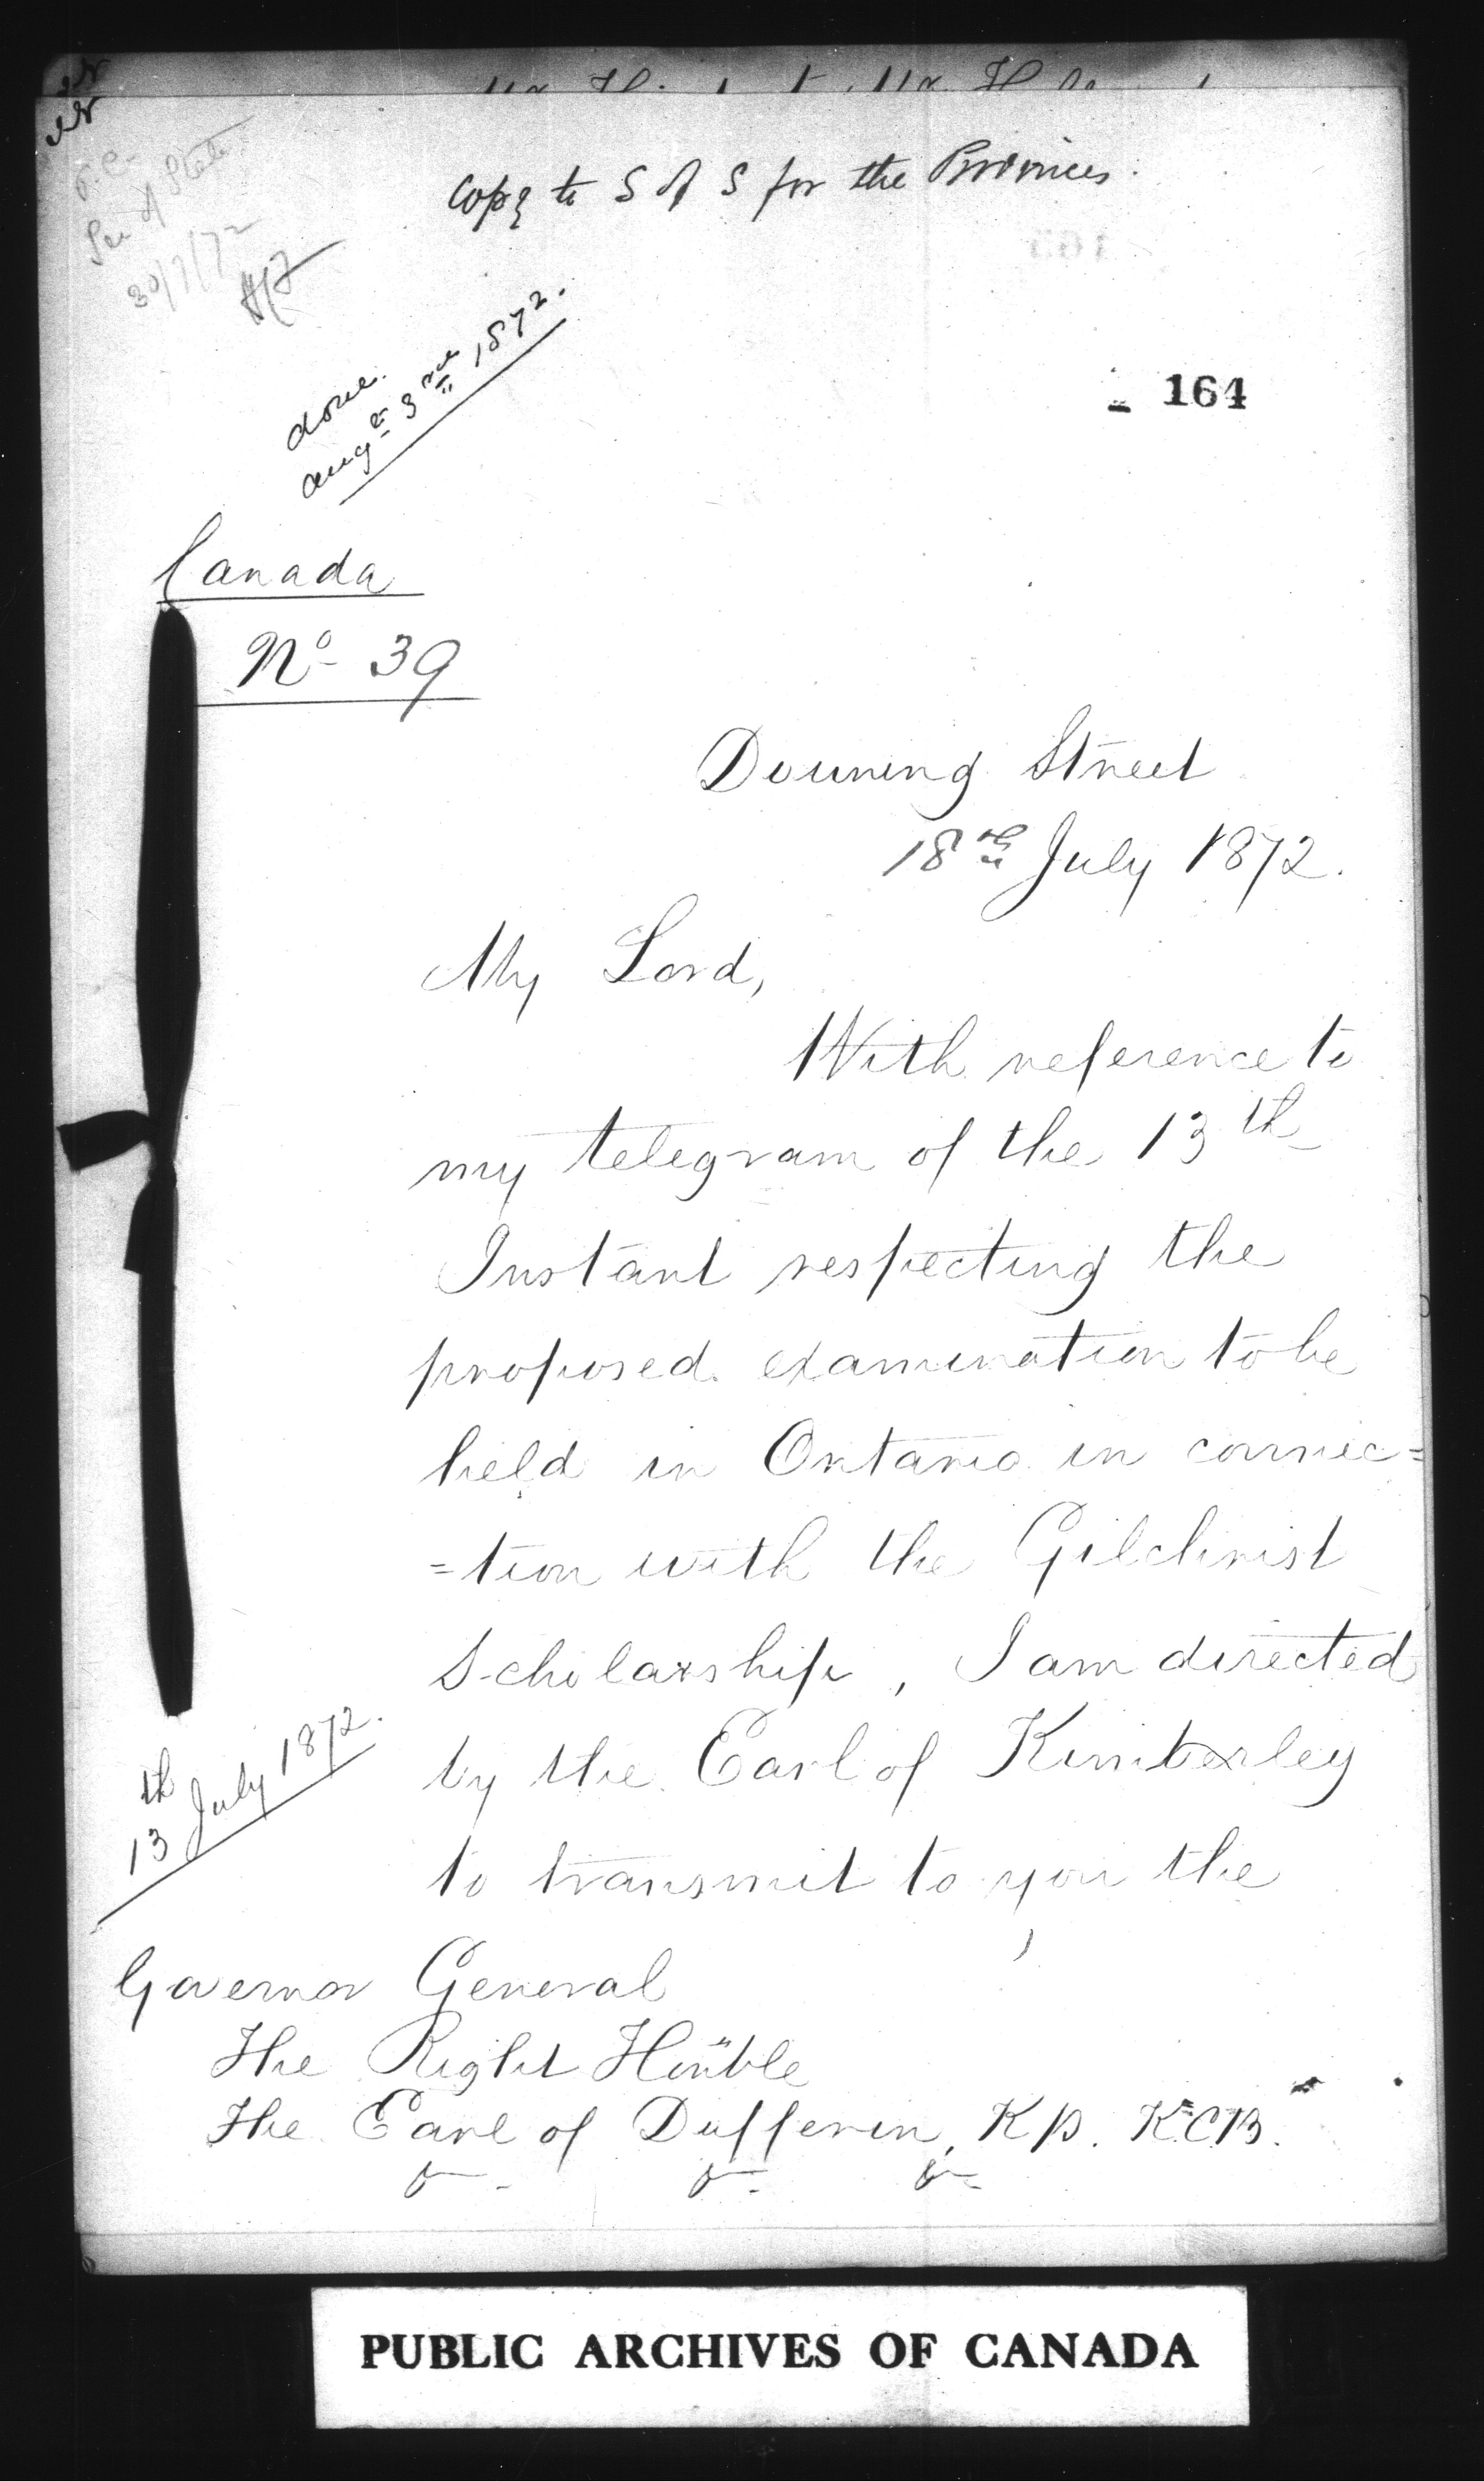 Copy to S of S for the Provinces.
Sec of State
30/7/72
done.
Augt 3rd 1872.
164
Canada
No 39
Downing Street
18th July 1872.
My Lord,
With reference to
my telegram of the 13th
Instant respecting the
proposed examination to be
held in Ontario in connec=
=tion with the Gilchrist
Scholarship, I am directed
by the Earl of Kimberley
to transmit to you the
13th July 1872.
Governor General
The Right Honble
The Earl of Dufferin, K.P. K.C.B.
PUBLIC ARCHIVES OF CANADA